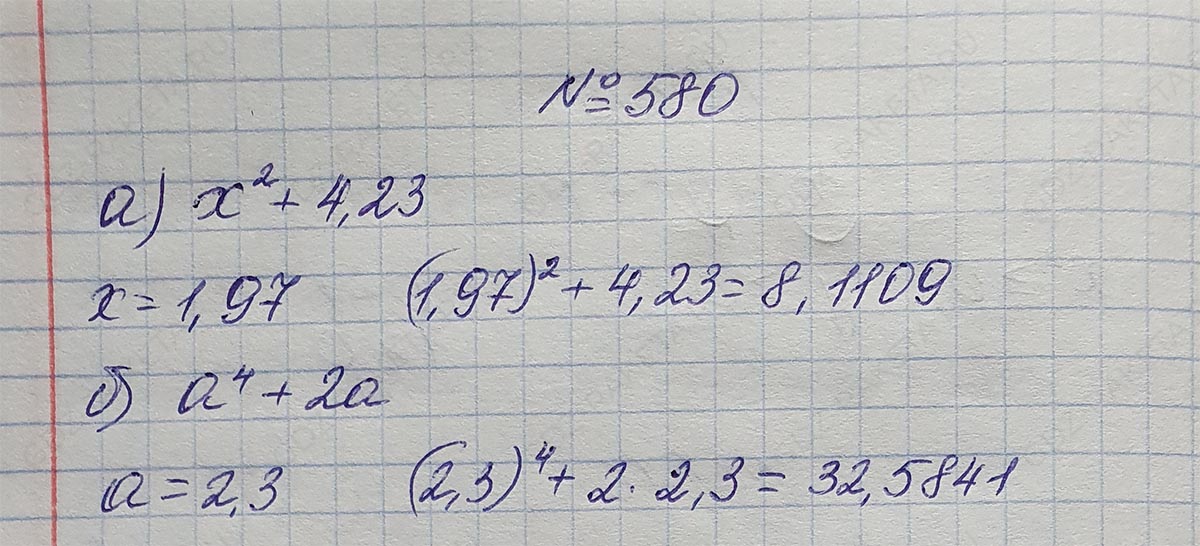 № 580
а) x² + 4,23
x = 1,97 (1,97)² + 4,23 = 8,1109
б) a⁴ + 2a
a = 2,3 (2,3)⁴ + 2 · 2,3 = 32,5841